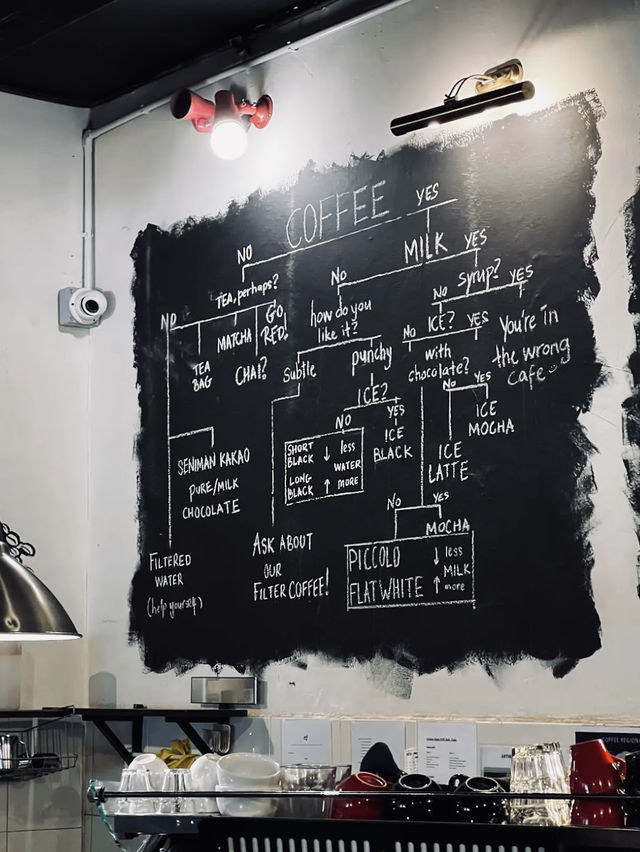 COFFEE
YES
NO
MILK
YES
TEA, perhaps?
No
syrup?
YES
NO
TEA
BAG
MATCHA
CHAI?
GO
RED!
how do you
like it?
Subtle
punchy
No
ICE?
YES
You're in
the wrong
cafe
with
chocolate?
No
YES
ICE
MOCHA
ICE
LATTE
ICE?
NO
YES
ICE
BLACK
SHORT
BLACK
↓
less
WATER
LONG
BLACK
↑
more
SENIMAN KAKAO
PURE/MILK
CHOCOLATE
No
YES
MOCHA
PICCOLO
↓
less
MILK
FLATWHITE
↑
more
FILTERED
WATER
(help yourself)
ASK ABOUT
OUR
FILTER COFFEE!
COFFEE REGION